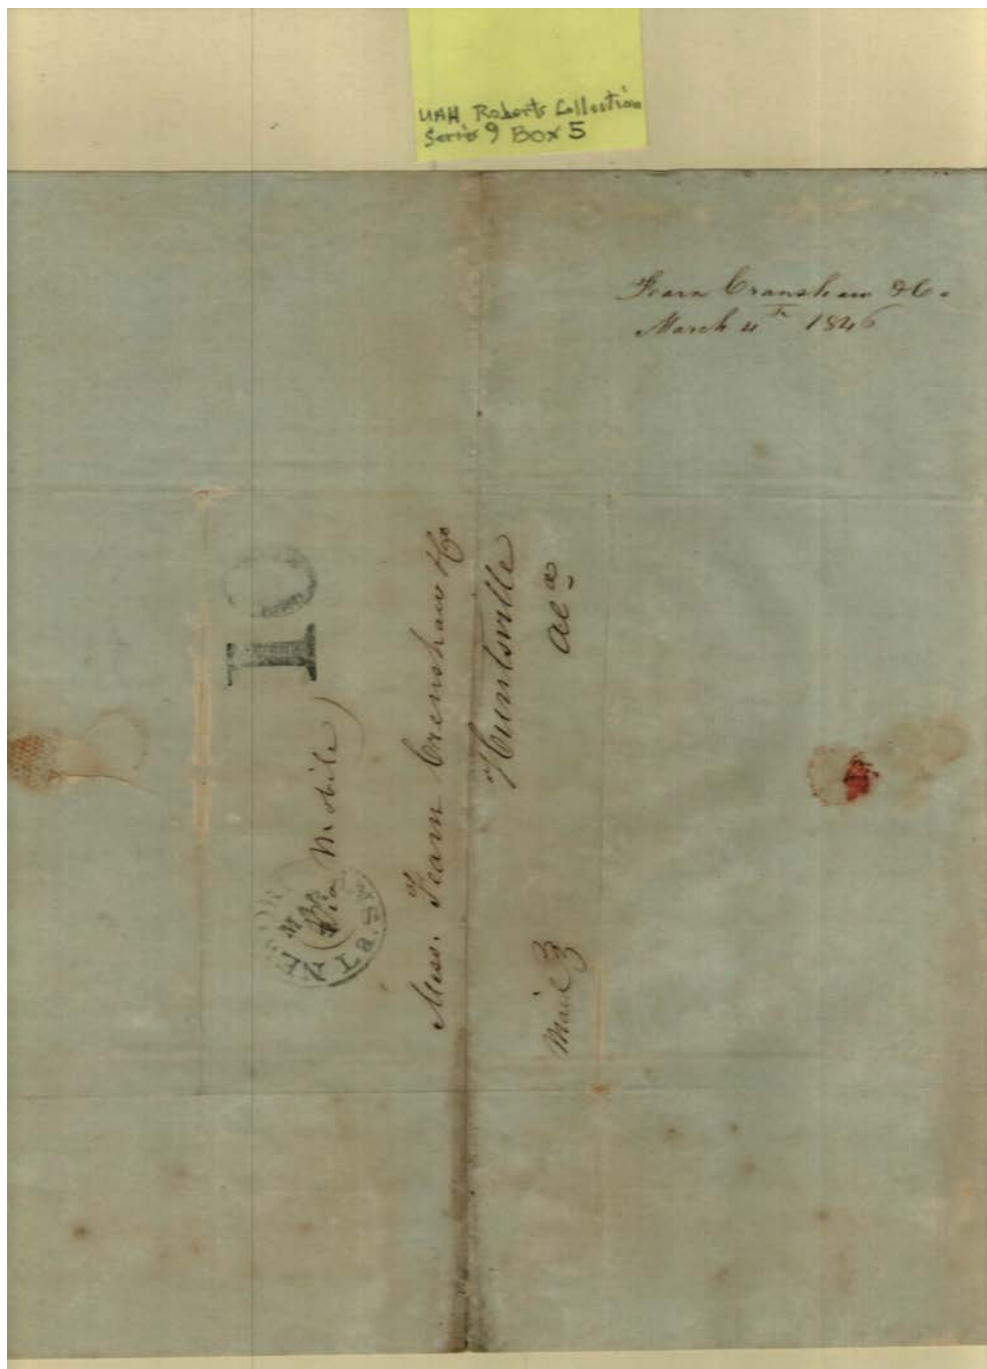 UAH Roberts Collection
Series 9 Box 5
Fearn Cranshaw & Co.
March 4th 1846
10
Via Mobile
MAR
Mess. Fearn Crenshaw & Co
Huntsville
Ala
Mail